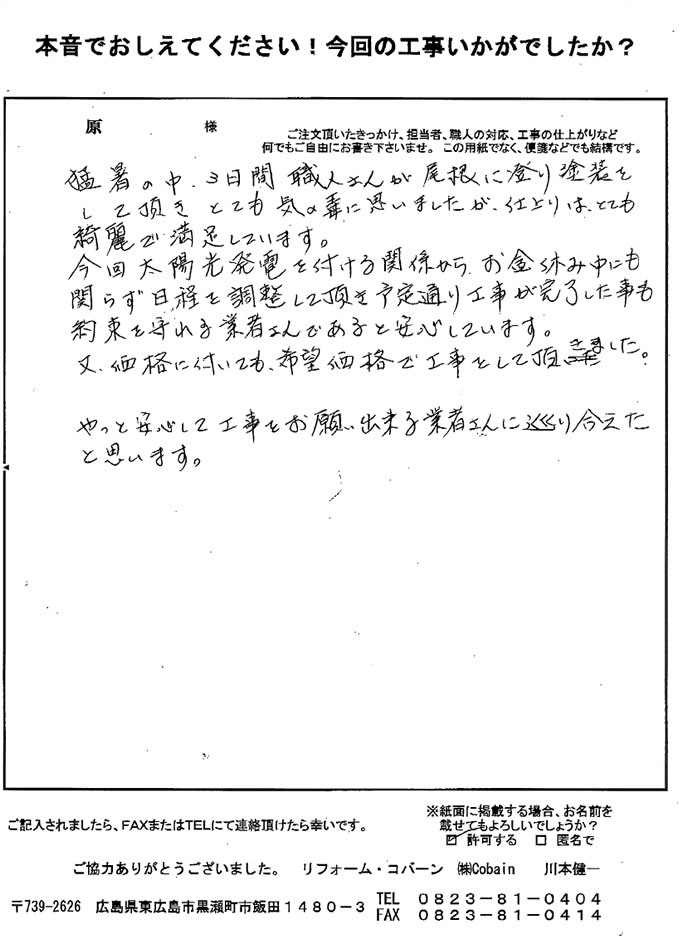 本音でおしえてください！今回の工事いかがでしたか？
原　様
ご注文頂いたきっかけ、担当者、職人の対応、工事の仕上がりなど
何でもご自由にお書き下さいませ。この用紙でなく、便箋などでも結構です。
猛暑の中、3日間 職人さんが 尾根に登り塗装を
して頂き とても 気の毒に思いましたが、仕上りは、とても
綺麗で満足しています。
今回 太陽光発電を付ける関係から お盆休み中にも
関らず 日程を調整して頂き 予定通り工事が完了した事も
約束を守れる業者さんであると安心しています。
又、価格に付いても、希望価格で工事をして頂きました。
やっと安心して工事をお願い出来る業者さんに巡り合えた
と思います。
ご記入されましたら、FAXまたはTELにて連絡頂けたら幸いです。
※紙面に掲載する場合、お名前を
載せてもよろしいでしょうか？
☑ 許可する　□ 匿名で
ご協力ありがとうございました。　リフォーム・コバーン　㈱Cobain　川本健一
〒739-2626　広島県東広島市黒瀬町市飯田１４８０－３
TEL　０８２３－８１－０４０４
FAX　０８２３－８１－０４１４